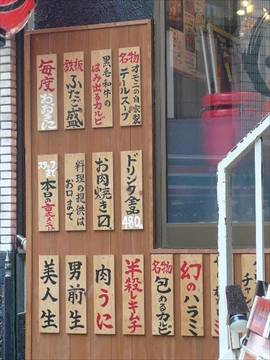 名物
オモニの自家製
テールスープ
黒毛和牛の
はみ出るカルビ
鉄板
ふたご盛
毎度
おおきに
ドリンク全品
480
お肉焼き〼
料理の提供は
お口まで
本日の
幻のハラミ
名物
包めるカルビ
半殺しキムチ
肉うに
男前生
美人生